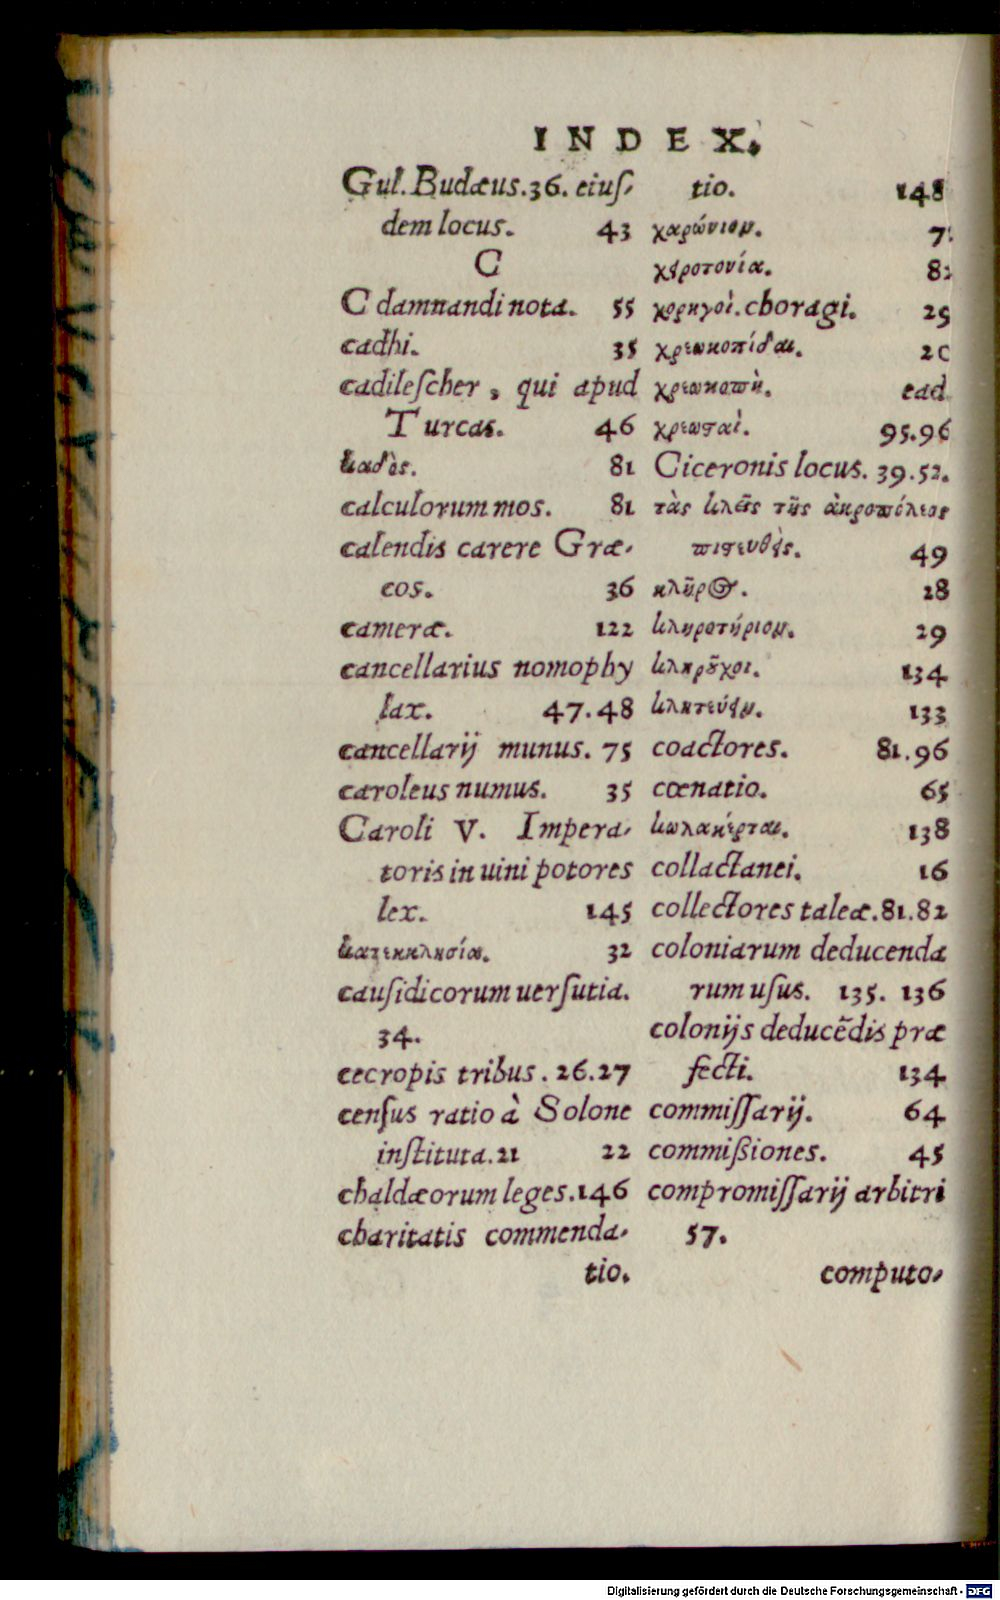 INDEX.
Gul. Budæus.36. eiuſ-
dem locus. 43
C
C damnandi nota. 55
cadhi. 35
cadileſcher, qui apud
Turcas. 46
καδὸς. 81
calculorum mos. 81
calendis carere Græ-
cos. 36
cameræ. 122
cancellarius nomophy
lax. 47.48
cancellarij munus. 75
caroleus numus. 35
Caroli V. Impera-
toris in uini potores
lex. 145
κατεκκλησία. 32
cauſidicorum uerſutia.
34.
cecropis tribus. 26.27
cenſus ratio à Solone
inſtituta.21 22
chaldæorum leges.146
charitatis commenda-
tio.
tio. 148
χαρώνιομ.
χειροτονία.
χορηγοὶ. choragi. 25
χρεωκοπίδαι.
χρεωκοπὴ. ead.
χρεωσταὶ. 95.96
Ciceronis locus. 39.52.
τὰς κλεῖς τῆς ἀκροπόλεως
πιστευθεὶς. 49
κλῆρος. 28
κληροτήριομ. 29
κληροῦχοι. 134
κλητεύειμ. 133
coactores. 81.96
cœnatio. 65
κωλακέρται. 138
collactanei. 16
collectores taleæ.81.82
coloniarum deducenda
rum uſus. 135. 136
colonijs deducēdis præ
fecti. 134
commiſſarij. 64
commiſsiones. 45
compromiſſarij arbitri
57.
computo-
Digitalisierung gefördert durch die Deutsche Forschungsgemeinschaft - DFG